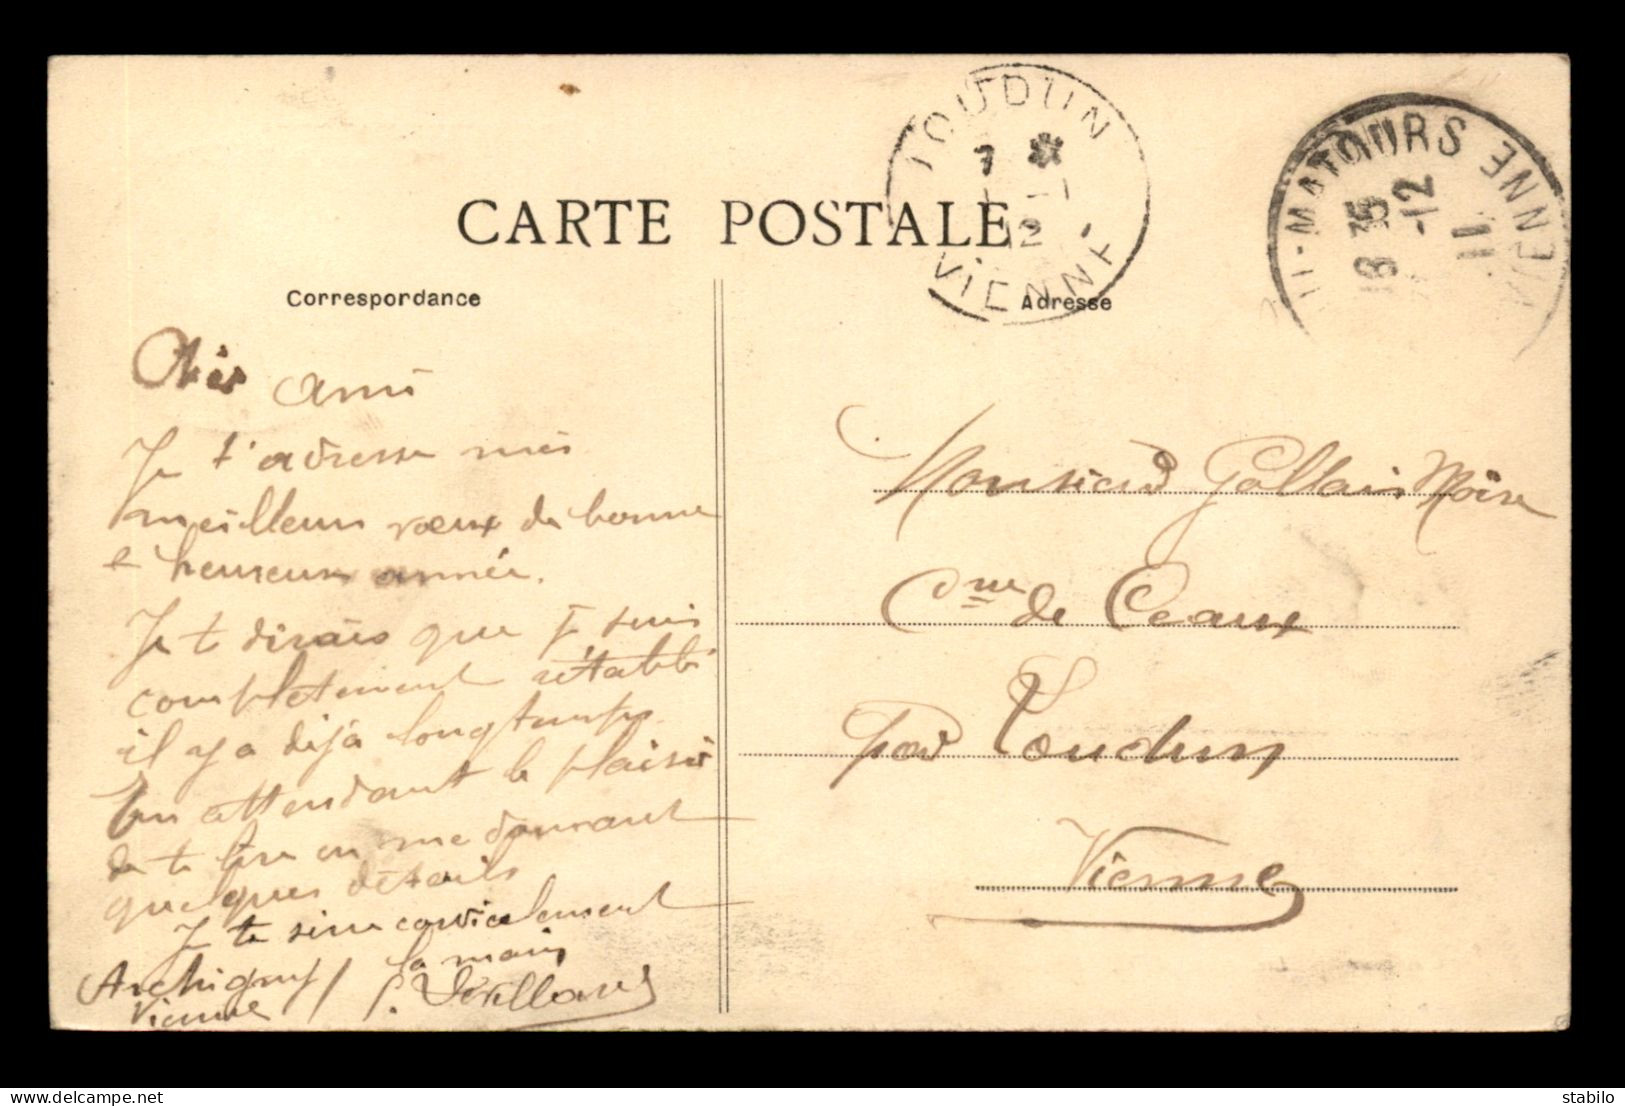 CARTE POSTALE
Correspondance
Adresse
LOUDUN
7 *
1 -
12
VIENNE
-MATOURS
18 35
-12
11
VIENNE
Cher ami
Je t'adresse mes
meilleurs vœux de bonne
e heureuse année.
Je te dirais que je suis
completement rétabli
il y a déjà longtemps
En attendant le plaisir
de te lire en me donnant
quelques détails
Je te serre cordialement
la main
Archigny
Vienne
Monsieur Gallais Moïse
Cne de Ceaux
par Loudun
Vienne
delcampe.net
stabilo